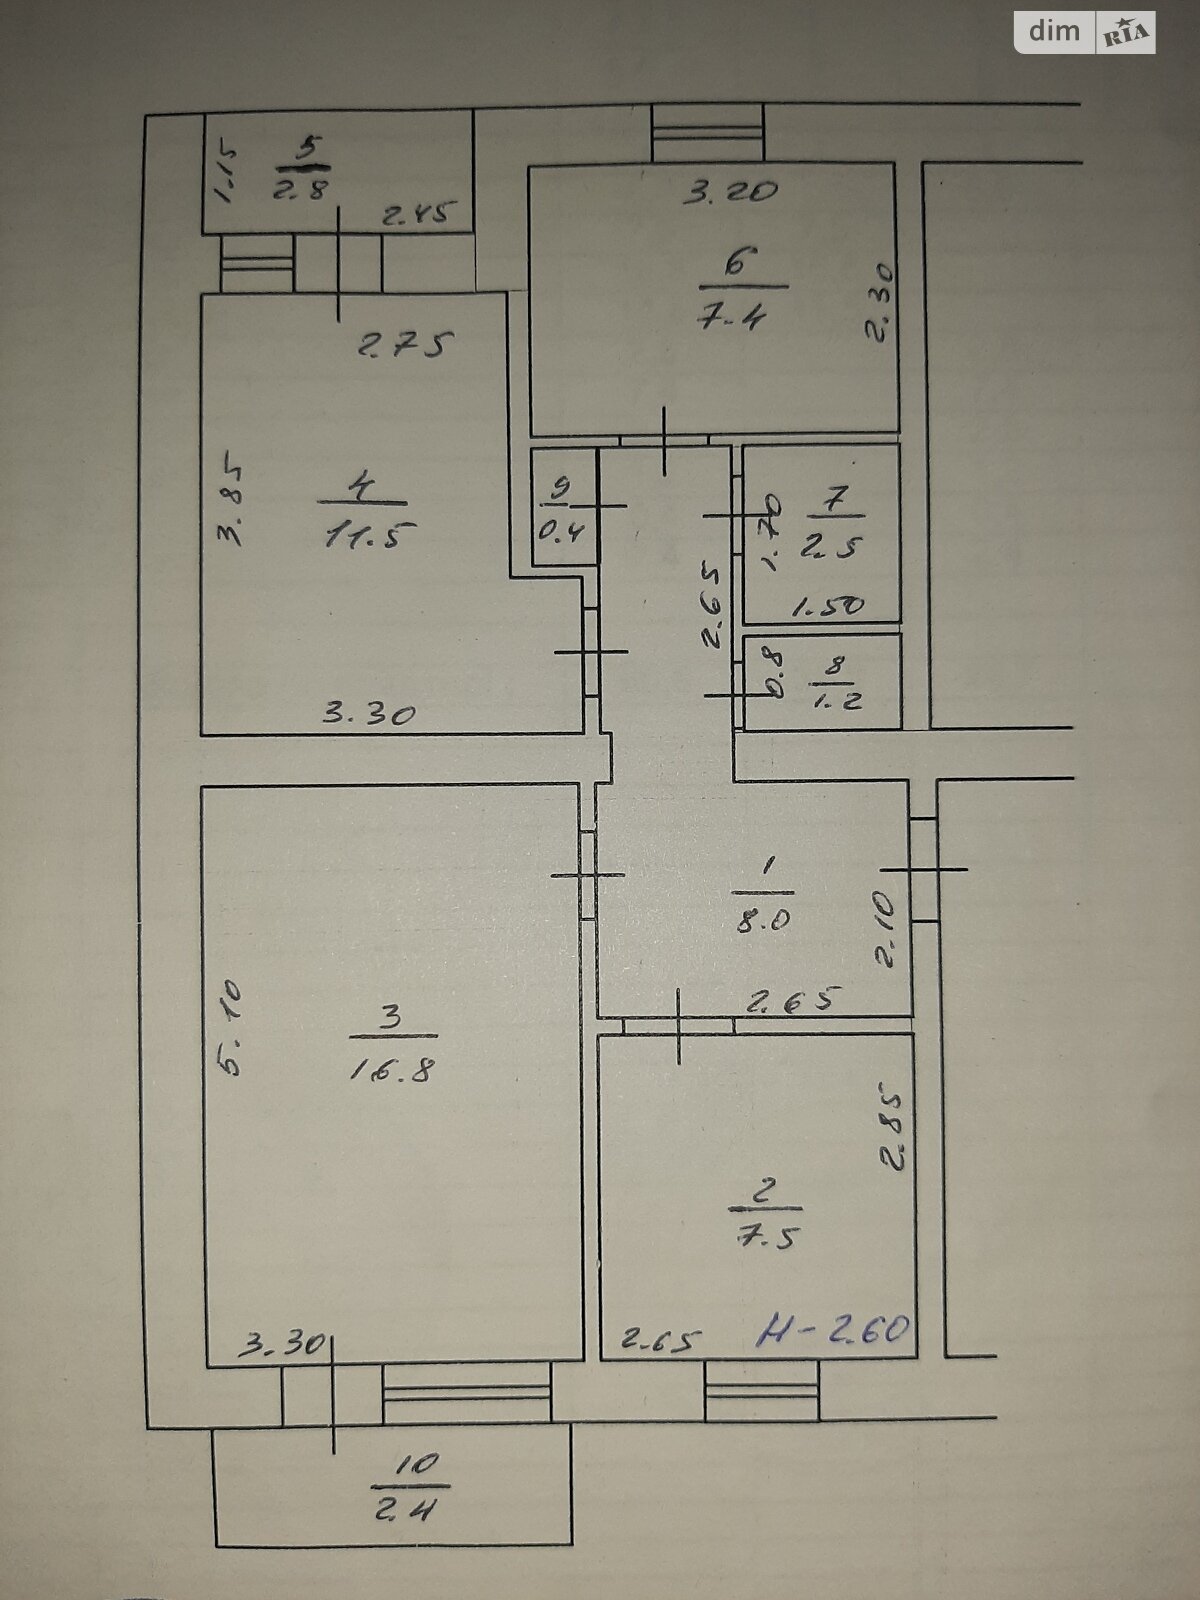 dim RIA
5
1.15
2.8
2.45
3.20
6
7.4
2.30
2.75
3.85
4
11.5
9
0.4
7
1.70
2.5
1.50
2.65
0.8
8
1.2
3.30
1
8.0
2.10
2.65
5.10
3
16.8
2.85
2
7.5
3.30
2.65
H-2.60
10
2.4